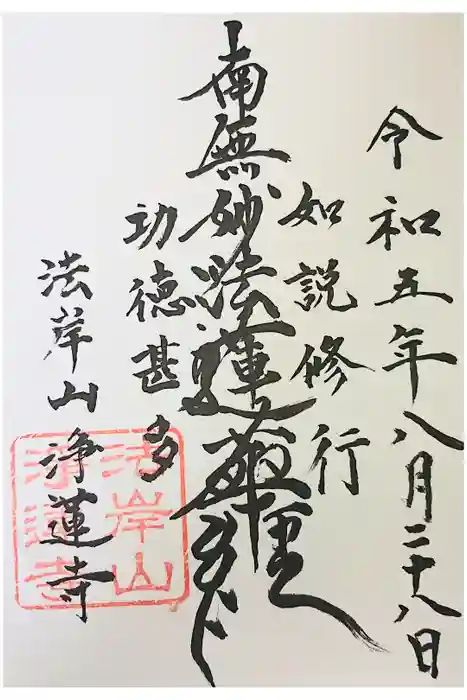 令和五年八月二十八日
如説修行
南無妙法蓮華経
功徳甚多
法岸山
浄蓮寺
法岸山
浄蓮寺